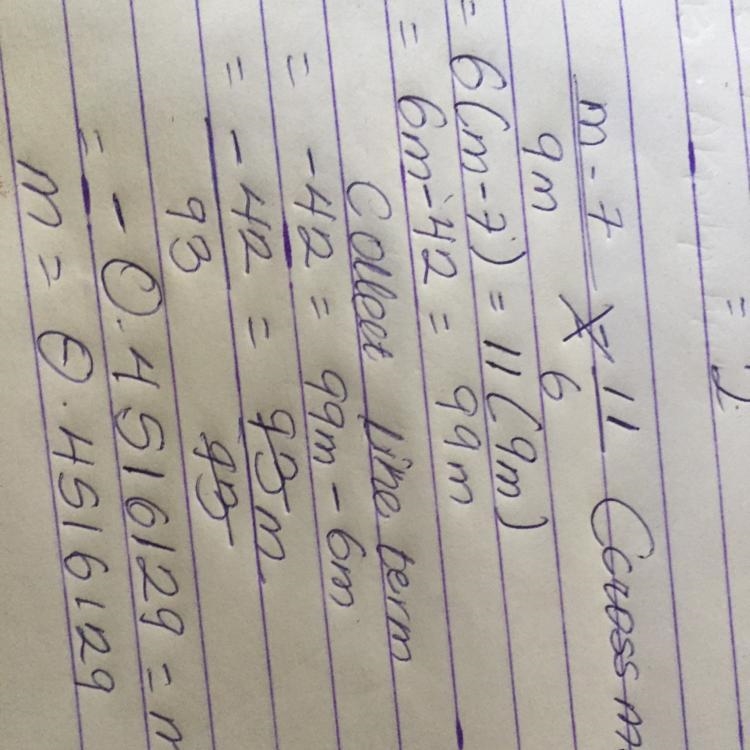 = 1
m - 7 × 11 Cross m
9m 6
= 6(m-7) = 11(9m)
= 6m-42 = 99m
Collect like term
= -42 = 99m - 6m
= -42 = 93m
93 93
= - 0.4516129 = m
m = 0.4516129